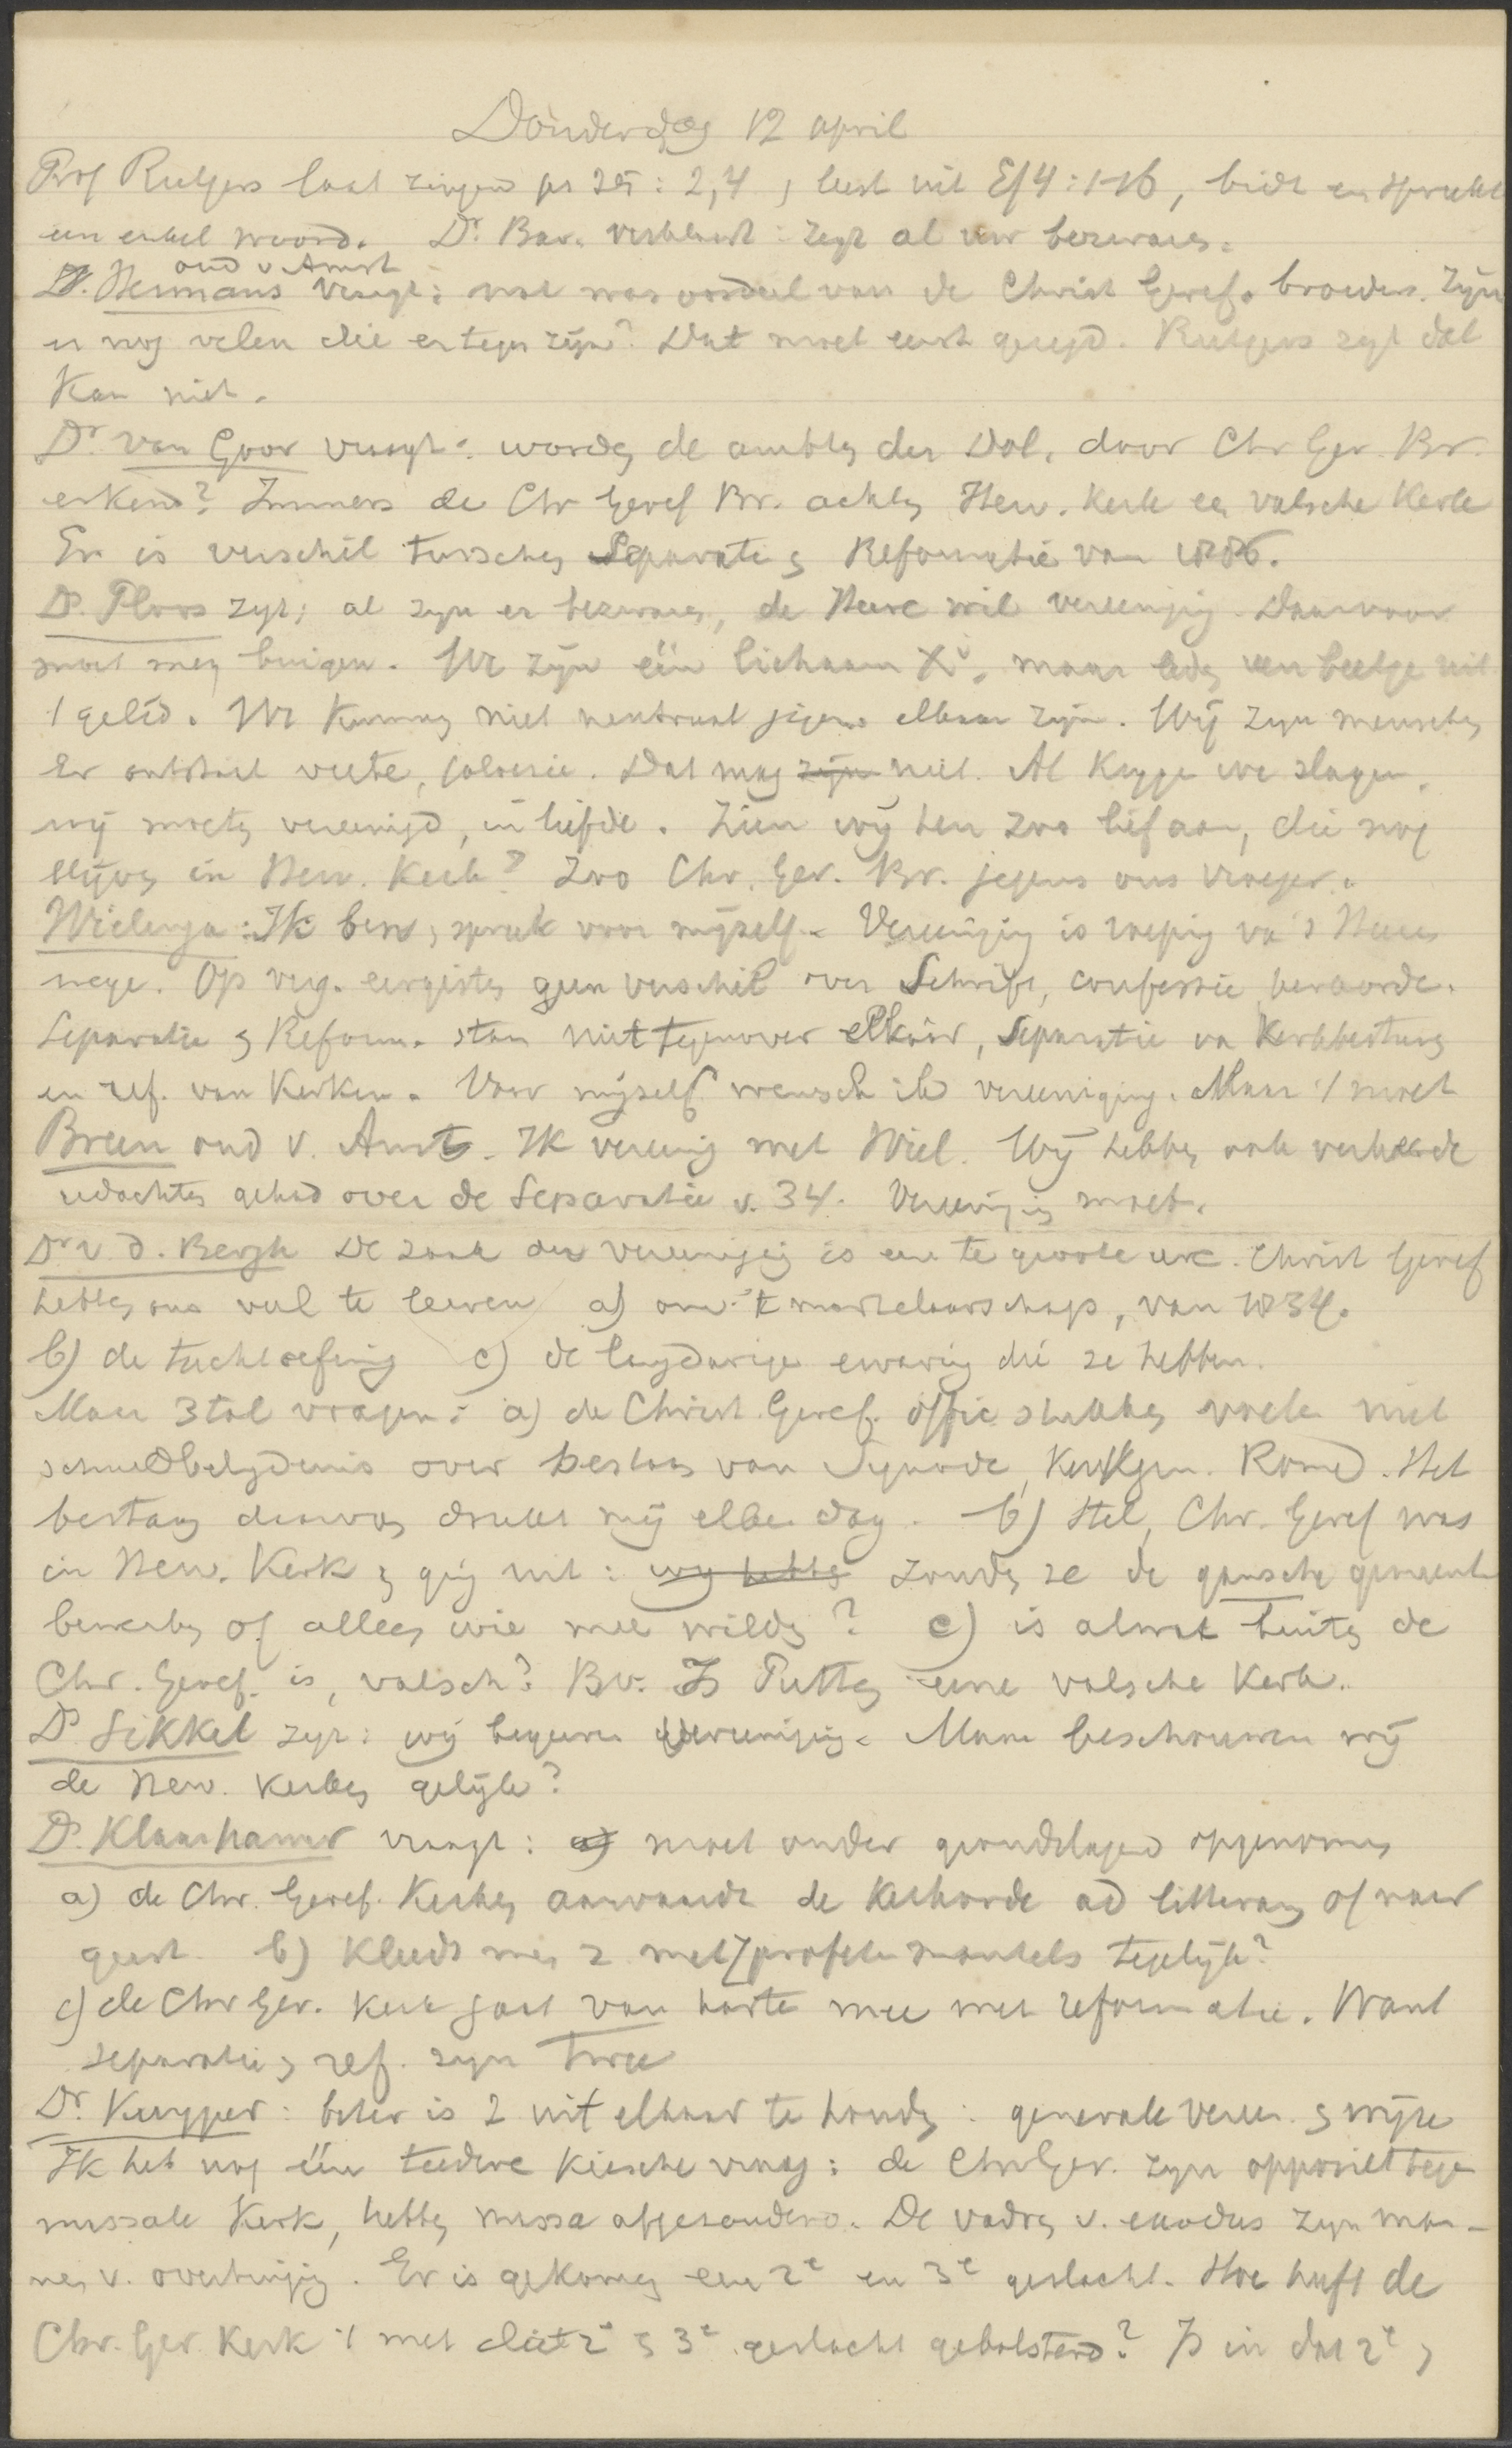 Donderdag 12 april
Prof Rutgers laat zingen ps 25 : 2,4 , leest uit Ef 4 : 1-16, bidt en spreekt
een enkel woord. Dr. Bav. verklaart : zegt al uw bezwaren.
oud v Amst
Hermans vraagt : wat was oordeel van de Christ Geref. broeders. Zijn
er nog velen die er tegen zijn? Dat moet eerst gezegd. Rutgers zegt dat
kan niet.
Dr van Goor vraagt : worden de ambten der Dol. door Chr Ger Br.
erkend? Immers de Chr Geref Br. achten Herv. Kerk een valsche Kerk
Er is verschil tusschen Separatie & Reformatie van 1886.
Ds. Ploos zegt: al zijn er bezwaren, de Heere wil vereeniging. Daarvoor
moet men buigen. We zijn één lichaam Xi, maar leden een beetje uit
't gelid. We kunnen niet neutraal jegens elkaar zijn. Wij zijn menschen
Er ontstaat veete, jaloesie. Dat mag zijn niet. Al krijgen we slagen,
wij moeten vereenigd, in liefde. Zien wij hen zoo lief aan, die nog
blijven in Herv. Kerk? Zoo Chr. Ger. Br. jegens ons vroeger.
Wielenga : Ik ben, spreek voor mijzelf. Vereeniging is roeping van 's Heeren
wege. Op verg. eergisteren geen verschil over Schrift, confessie, kerkorde.
Separatie & Reform. staan niet tegenover elkaar, Separatie van Kerkbesturen
en ref. van Kerken. Voor mijzelf wensch ik vereeniging. Maar 't moet
Breen oud v. Amst. Ik vereenig met Wiel. Wij hebben ook verkeerde
gedachten gehad over de Separatie v. 34. Vereeniging moet.
Dr v d. Bergh De zaak der vereeniging is een te groote eere. Christ Geref
hebben ons veel te leeren a) om 't martelaarschap, van 1834.
b) de tuchtoefening c) de langdurige ervaring die ze hebben.
Maar 3tal vragen : a) de Christ. Geref. offic. stukken voelen niet
schuldbelydenis over bestaan van Synode, Kerkgen. Rome. Het
bestaan daarvan drukt mij elken dag. b) Stel, Chr. Geref was
in Herv. Kerk & ging uit : wij hebben zouden ze de gansche gemeente
bewerken of alleen wie mee wilden? c) is alwat buiten de
Chr. Geref. is, valsch? Bv. Is Putten eene valsche Kerk.
Ds Sikkel zegt : wij begeeren vereeniging. Maar beschouwen wij
de Herv. Kerken gelijk?
Ds. Klaarhamer vraagt : a) moet onder grondslagen opgenomen
a) de Chr. Geref. Kerken aanvaardt de Kerkorde ad litteram of naar
geest b) Kleedt men 2 met profetenmantels tegelijk?
c) de Chr Ger. Kerk gaat van harte mee met reformatie. Want
separatie & ref. zijn twee
Dr. Kuyper : beter is 2 uit elkaar te houden : generale veree. & wijze
Ik heb nog één teedere kiesche vraag : de Chr Ger. zijn opponiet tegen
massale Kerk, hebben massa afgezonderd. De vaders v. exodus zijn man-
nen v. overtuiging. Er is gekomen een 2e en 3e geslacht. Hoe heeft de
Chr. Ger. Kerk 't met dat 2e & 3e geslacht gebolsterd? Is in dat 2e &